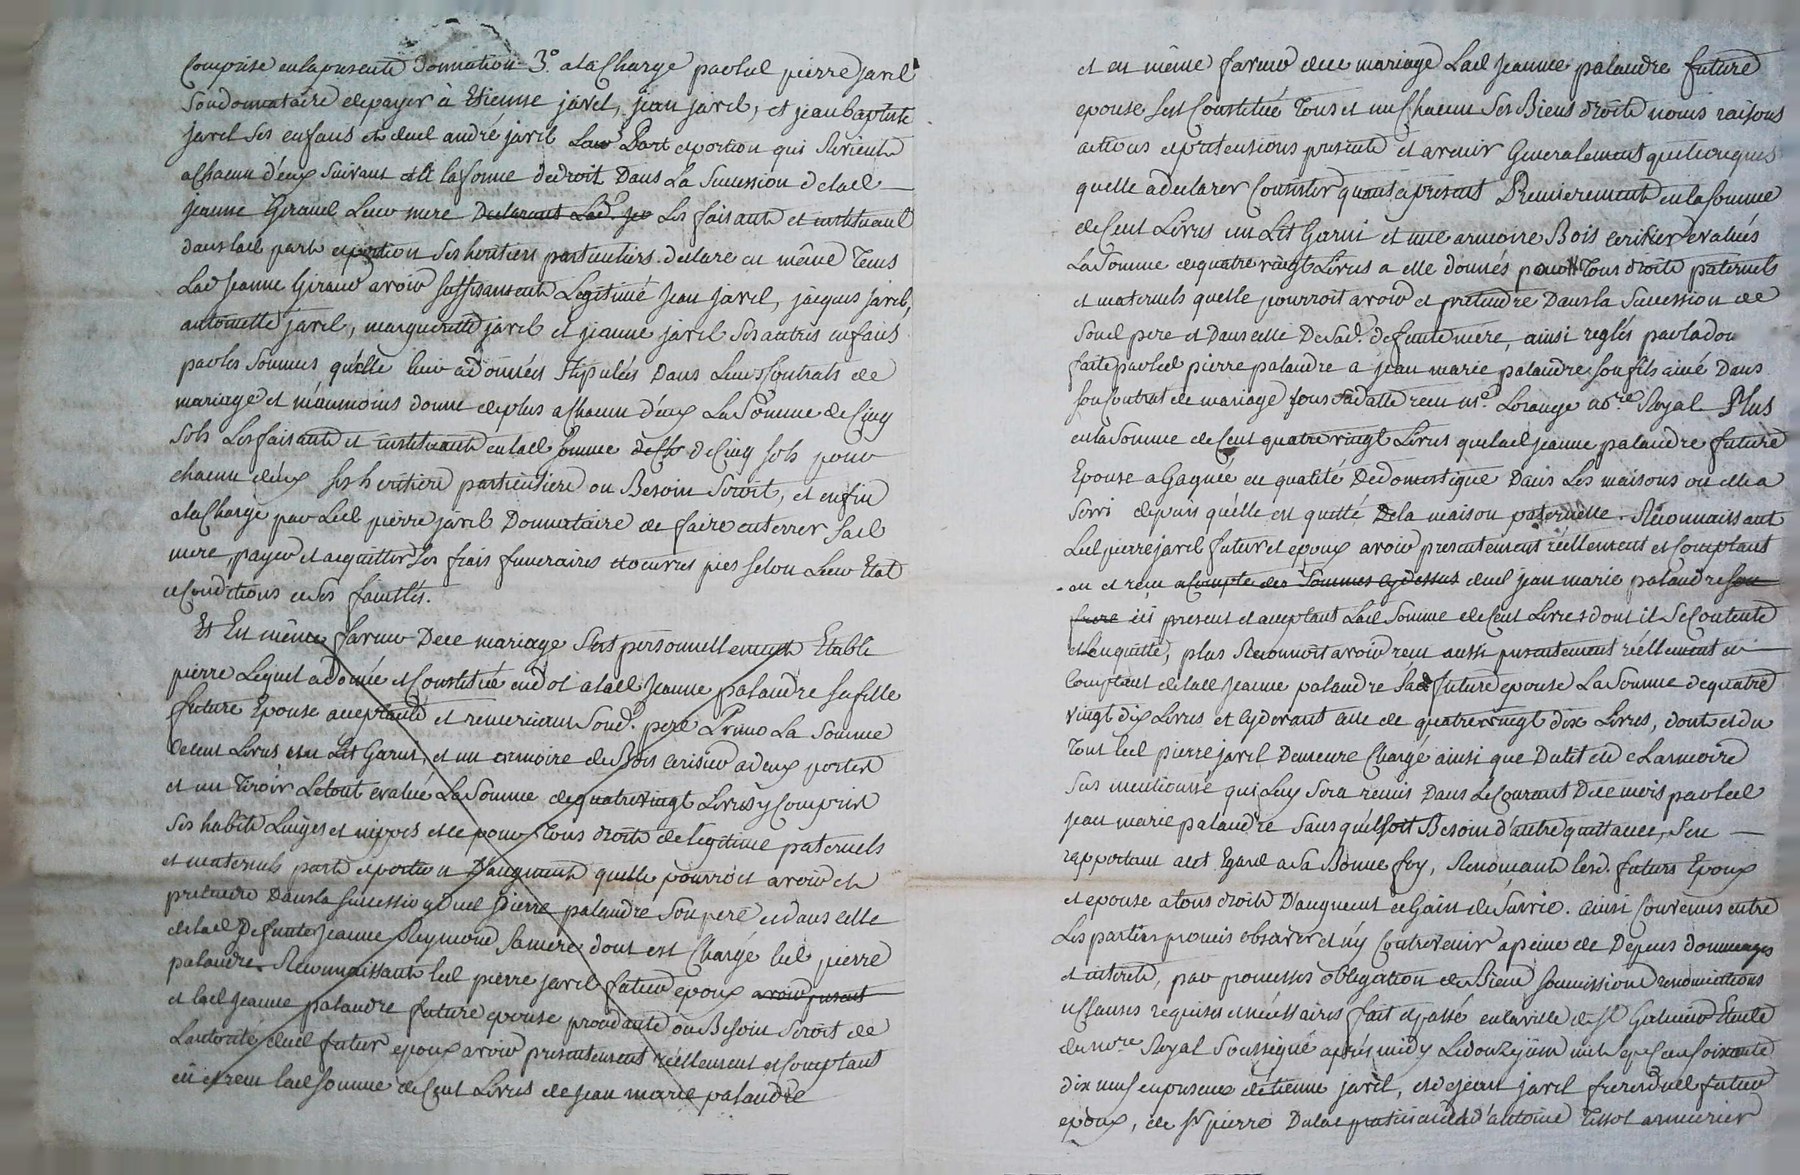 Comprise en la presente Donnation 3° a la Charge par led pierre javel
Son donnataire de payer à Etienne javel, jean javel, et jean baptiste
javel ses enfans et dud andré javel Leur Part et portion qui Revient
a Chacun d'eux Suivant et a la forme de droit Dans La Succession de lad
jeanne Giraud Leur mere Declarant Lad. je Les faisant et instituant
dans lad part et portion ses heritiers particuliers. declare en même Tems
Lad jeanne Giraud avoir suffisament Legitimé jean javel, jacques javel,
antoinette javel, marguerite javel et jeanne javel Ses autres enfans
par les Sommes qu'elle leur a données Stipulées Dans Leurs Contrats de
mariage et néanmoins donne de plus a Chacun d'eux La Somme de Cinq
Sols Les faisant et instituant en lad Somme de Cinq sols pour
chacun d'eux ses heritiers particuliers ou Besoin Seroit, et enfin
a la Charge par Led pierre javel Donnataire de faire enterrer Sad
mere, payer et acquitter Ses frais funeraires et oeuvres pies selon Leur Etat
et Conditions de Ses facultés.
Et En même faveur De ce mariage S'est personnellement Etabli
pierre Lequel a donné et Constitué en dot a lad Jeanne palandre sa fille
future Epouse acceptante et remerciant Sond. pere Primo La Somme
de Cent Livres un Lit Garni, et un armoire de Bois cerisier a deux portes
et un Tiroir Le tout evalué La Somme de quatre vingt Livres y Compris
Ses habits Linges et nippes et ce pour Tous droits de legitime paternels
et maternels part et portion D'augment quelle pourroit avoir et
pretendre Dans la Succession dud pierre palandre Son pere et dans celle
de lad Defunte Jeanne Reymond Sa mere dont est Chargé led pierre
palandre. Reconnaissant led pierre javel futur epoux avoir present
et lad Jeanne palandre future epouse procedante ou Besoin Seroit de
L'autorité dud futur epoux avoir presentement réellement et Comptant
eû et reçu lad Somme de Cent Livres de jean marie palandre
et en même faveur de ce mariage Lad Jeanne palandre future
epouse s'est Constitué Tous et un Chacun Ses Biens droits noms raisons
actions et pretensions presents et avenir Generalement quelconques
quelle a declarer Consister quant a present Premierement en la Somme
de Cent Livres un Lit Garni et une armoire Bois cerisier evalués
La Somme de quatre vingt Livres a elle donnés pour Tous droits paternels
et maternels quelle pourroit avoir et pretendre Dans la Succession de
Sond pere et Dans celle De Sad. defunte mere, ainsi reglés par la don
faite par led pierre palandre a jean marie palandre son fils ainé Dans
son Contrat de mariage sous sa datte reçu me. Lorange nore. Royal Plus
en la Somme de Cent quatre vingt Livres que lad jeanne palandre future
Epouse a Gagnée en qualité De domestique Dans Les maisons ou elle a
Servi depuis qu'elle est quitté De la maison paternelle. Reconnaissant
Led pierre javel futur epoux avoir presentement réellement et Comptant
eu et reçu a Compte des Sommes cydessus dud jean marie palandre son
frere ici present et acceptant Lad Somme de Cent Livres dont il Se Contente
et l'en quitte, plus Reconnoit avoir reçu aussi presentement réellement et
Comptant de lad Jeanne palandre Sad future epouse La Somme de quatre
vingt dix Livres et cydevant celle de quatre vingt dix Livres, dont et du
Tout led pierre javel Demeure Chargé ainsi que Du lit et de L'armoire
Sus mentionné qui Luy Sera remis Dans Le Courant De ce mois par led
jean marie palandre Sans qu'il soit Besoin d'autre quittance, s'en
rapportant a cet Egard a la Bonne foy, Renonçant lesd. futurs Epoux
et epouse a tous droits D'augment et Gain de Survie. ainsi Convenus entre
Les parties promis observer et n'y Contrevenir a peine de Depens dommages
et interets, par promesses obligation de Biens soumissions renonciations
et Clauses requises et nécessaires fait et passé en la ville de St Etude
du nore Royal Soussigné après midy Le douze juin mil sept Cent Soixante
dix neuf en presence d'etienne javel, et de jean javel freres dud futur
epoux, de sr pierre praticien et d'antoine Tissot armurier